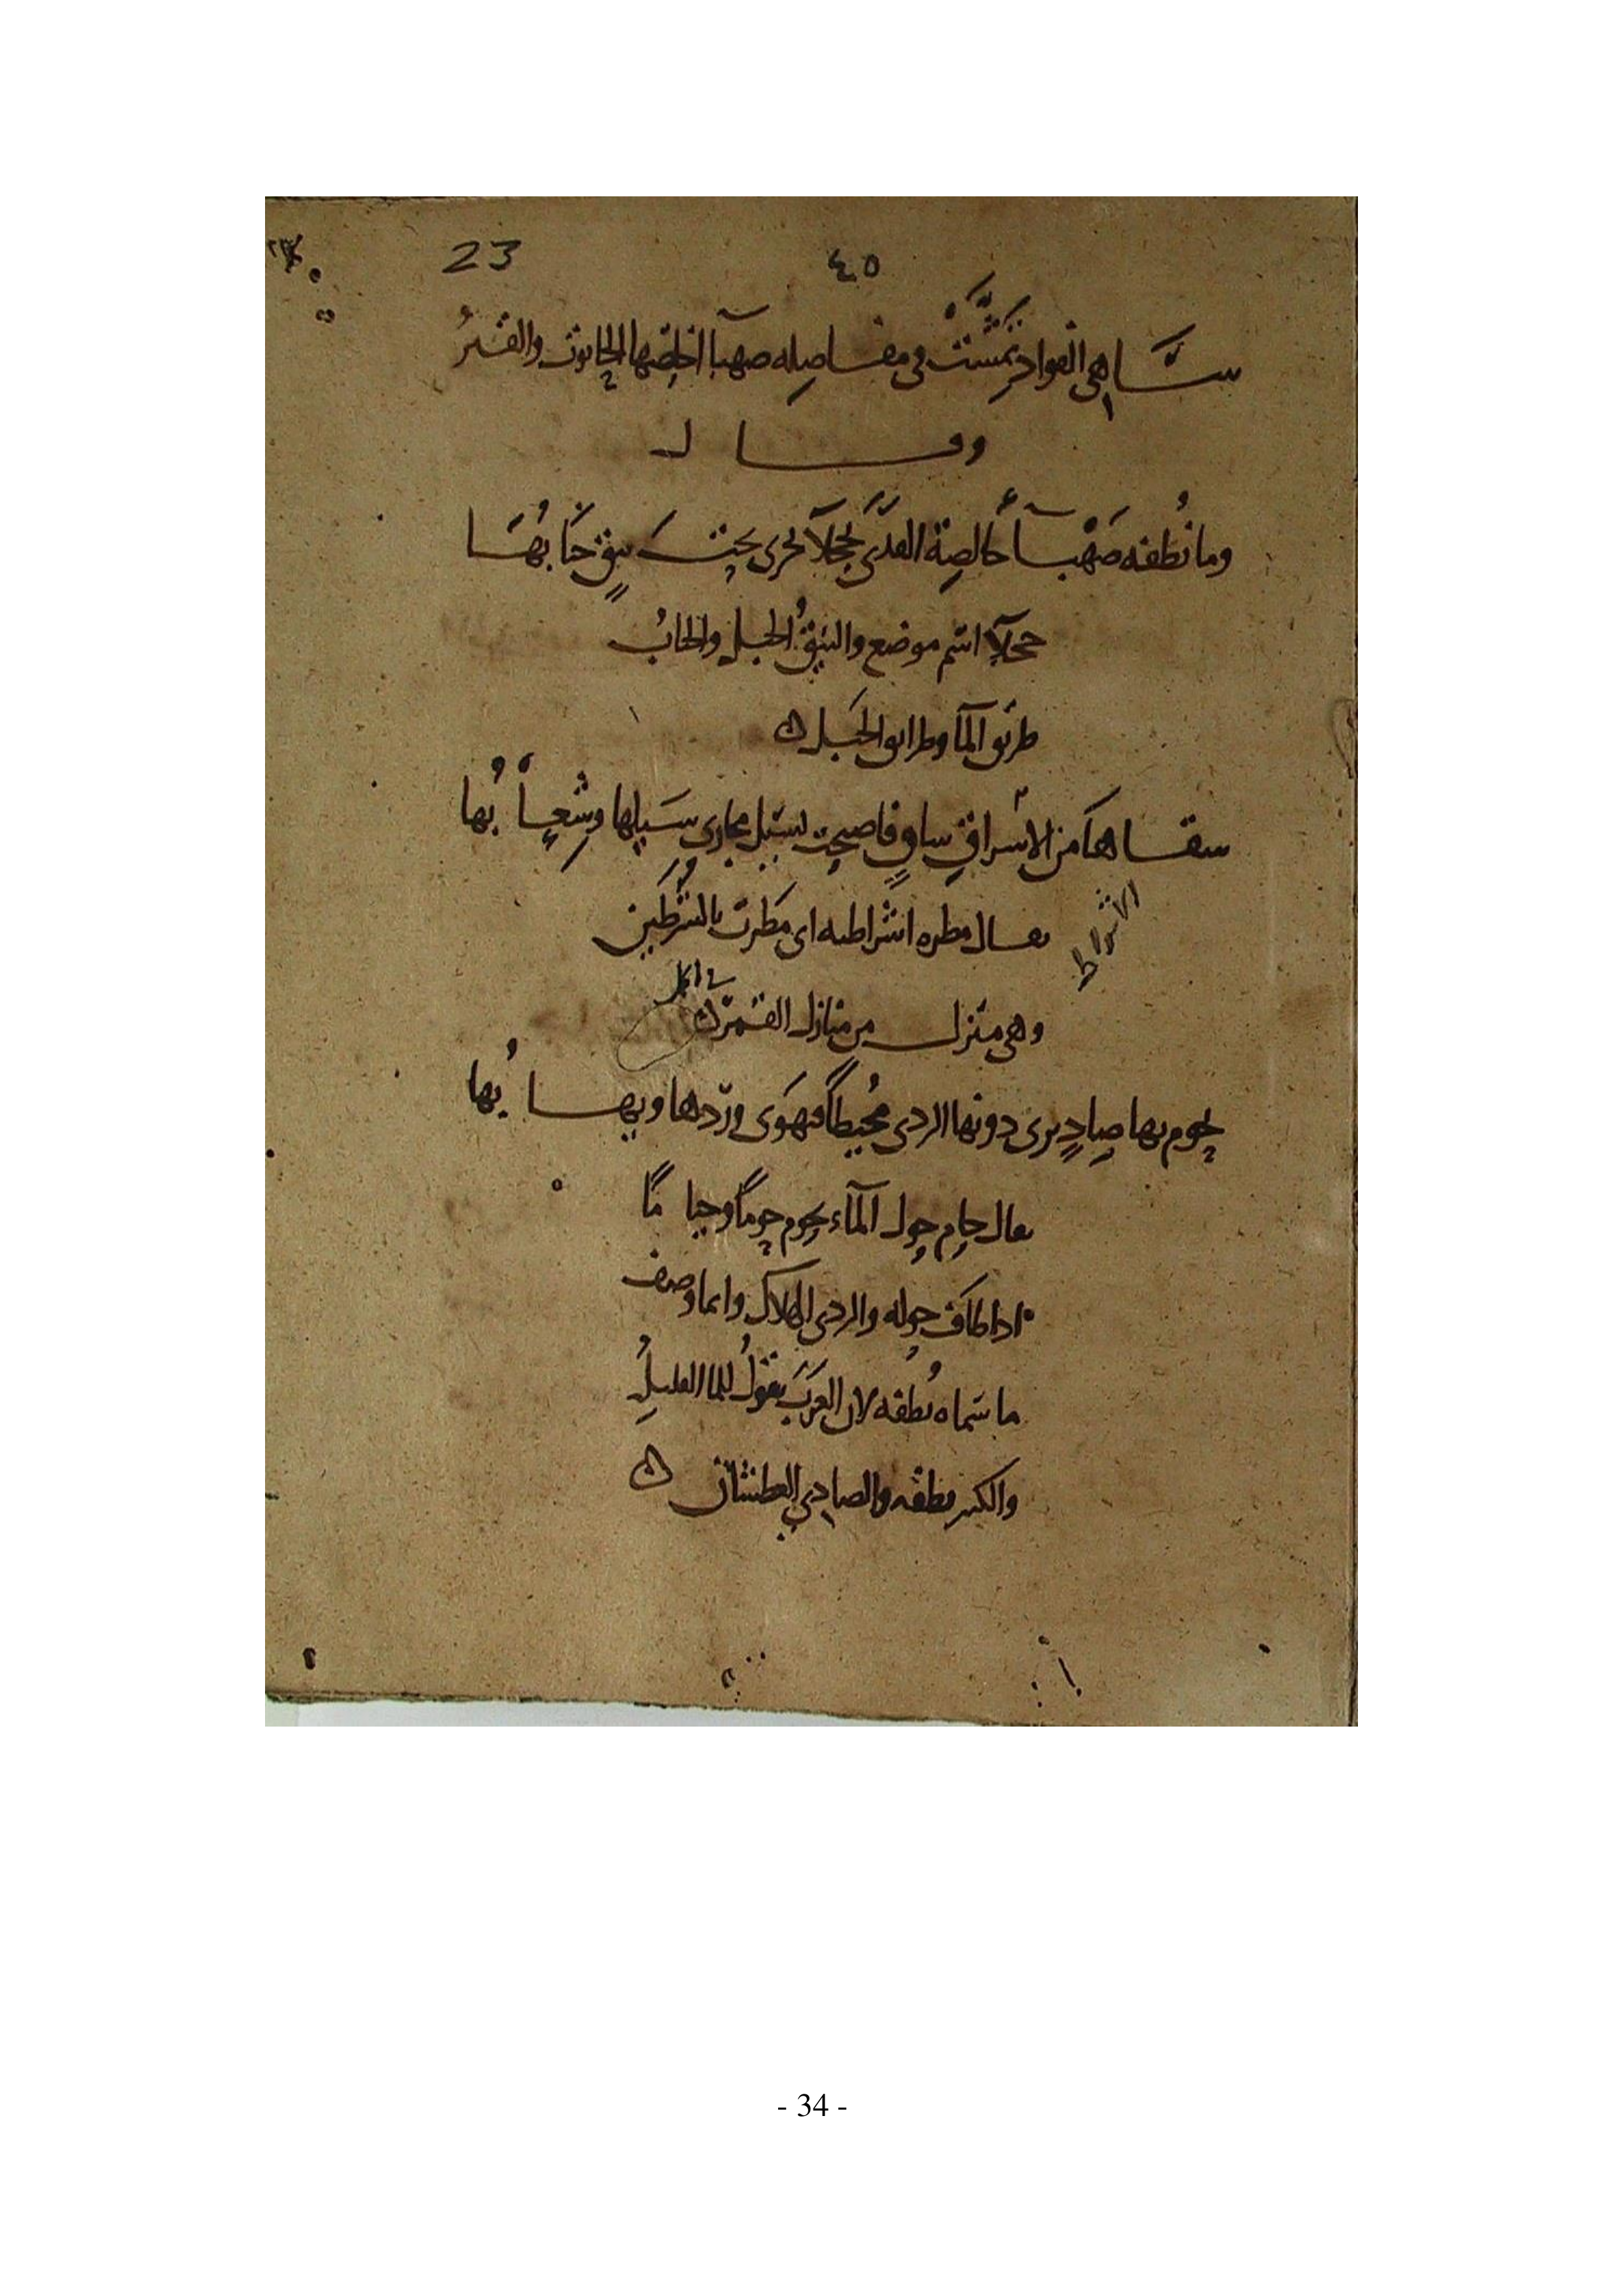 23 ٤٥
ساهي الفواد تمشت في مفاصله صهبآ اخلصها الحانوت والقسر
وقال
وما نُطفه صَهْبآ خالصة القذى بحجلآ يجري تحت نيق حبابُها
حجلآ اسم موضع والنيقُ الجبل والحبابُ
طريق المآ وطرايق الجبل
سقاها من الاشراف ساقٍ فاصبحت تسيل مجاري سيلها وشِعابُها
الاشراط
يقال مطره اشراطيه اي مَطرت بالشَّرَطَين
وهي منزل من منازل القمر
يحوم بها صادٍ يرى دونها الردى مُحيطاً فيهوى وِردها ويهابُها
يقال حام حول المآء يحوم حوماً وحياماً
اذا طاف حوله والردى الهلاك وانما وصف
ما سماه نُطفه لان العرَبَ تقولُ للما القليلِ
والكثير نطفه والصادي العطشان
- 34 -